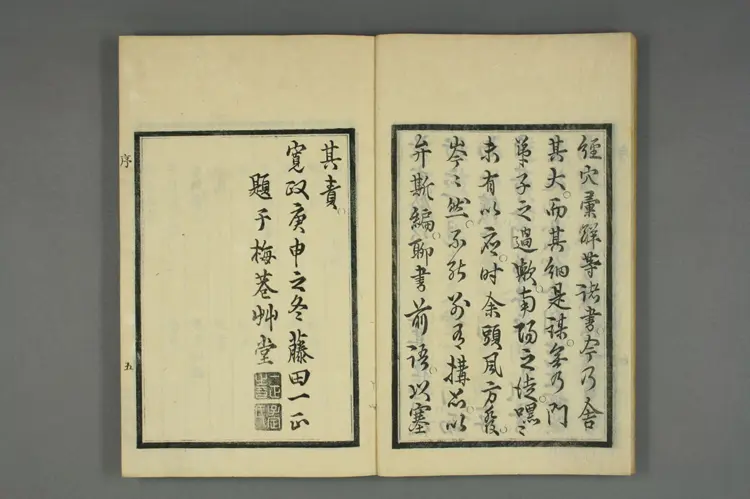 經穴彙解等諸書今乃舍
其大而其細是謀無乃門
弟子之過歟南陽之徒嘿々
未有以應時余頭風方發
岑々然不能別有構思以
弁斯編聊書前語以塞
其責
寛政庚申之冬藤田一正
題于梅巷艸堂
序
五